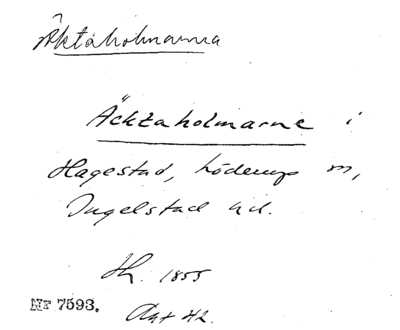 Äktaholmarna
Äcktaholmarne i
Hagestad, Löderups sn,
Ingelstad hd.
Th. 1855
Nr 7593.
Akt 42.